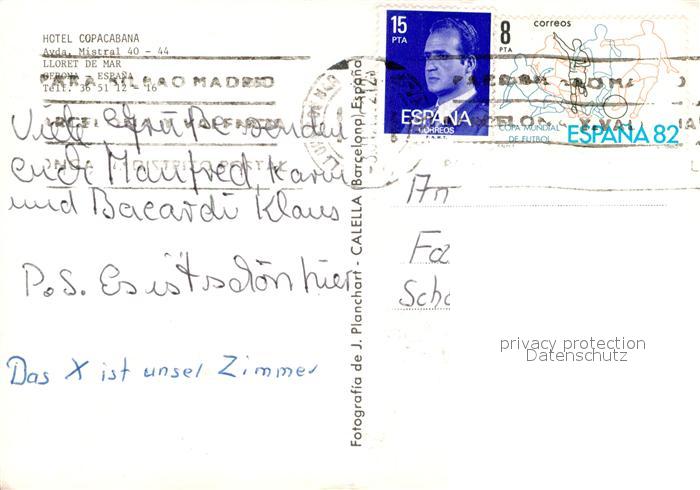 HOTEL COPACABANA
Avda. Mistral 40 - 44
LLORET DE MAR
GERONA - ESPAÑA
Telf. 36 51 12 - 16
BILBAO MADRID
Viele Grüße senden
euch Manfred, Karin
und Bacardi Klaus
P.S. Es ist schön hier
Das X ist unser Zimmer
Fotografía de J. Planchart - CALELLA (Barcelona) España
15
PTA
ESPAÑA
CORREOS
F.N.M.T.
8
PTA
correos
COPA MUNDIAL
DE FUTBOL
ESPAÑA 82
Fa
Scho
privacy protection
Datenschutz